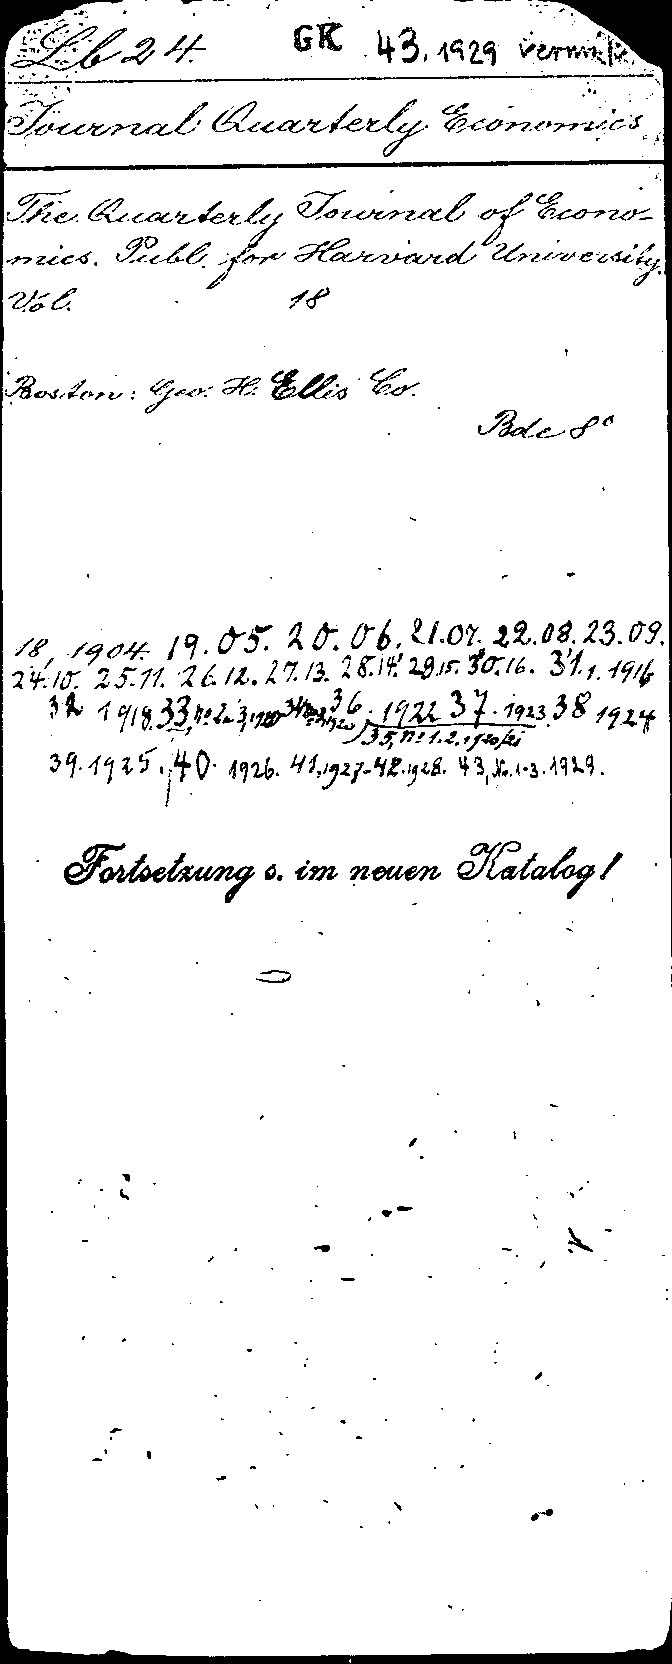 Lb 24. GK 43.1929
Journal Quarterly Economics
The Quarterly Journal of Econo-
mics. Publ. for Harvard University.
Vol. 18
Boston: Geo. H. Ellis Co.
Bde 8°
18, 1904. 19.05. 20.06. 21.07. 22.08. 23.09.
24.10. 25.11. 26.12. 27.13. 28.14. 29.15. 30.16. 31,1. 1916
32 1918. 33, No 2-3, 1920 36. 1922 37. 1923. 38 1924
35, No 1.2. 1920/21
39. 1925. 40. 1926. 41. 1927. 42. 1928. 43, No. 1-3. 1929.
Fortsetzung s. im neuen Katalog!